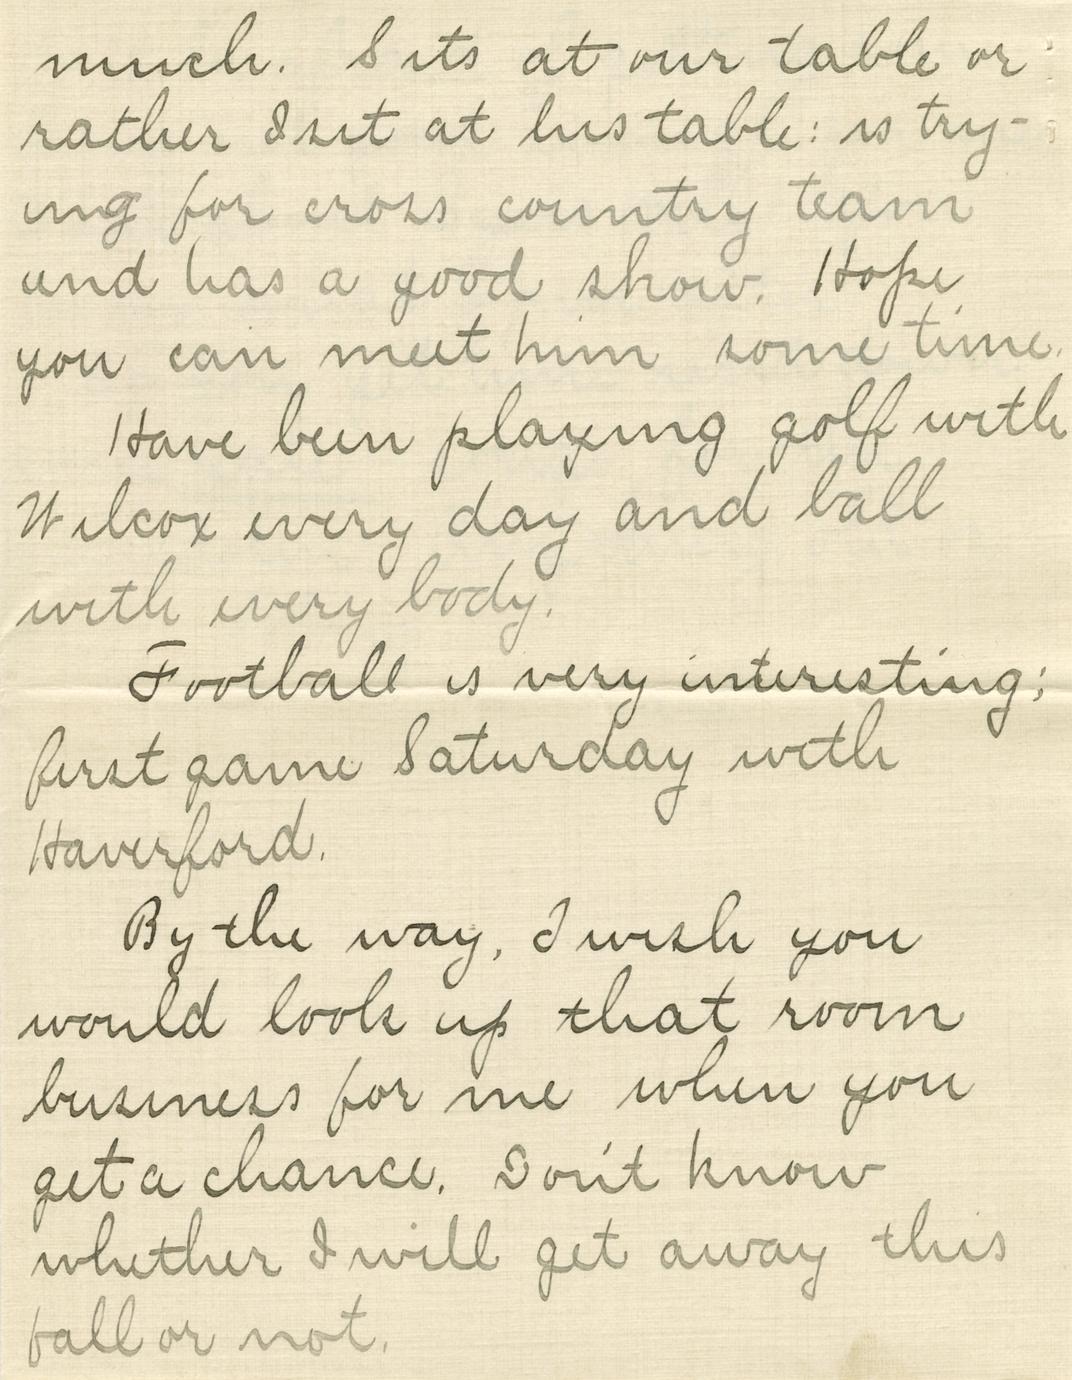 much. Sits at our table or
rather I sit at his table: is try-
ing for cross country team
and has a good show. Hope
you can meet him some time.
Have been playing golf with
Wilcox every day and ball
with every body.
Football is very interesting;
first game Saturday with
Haverford.
By the way, I wish you
would look up that room
business for me when you
get a chance. Don't know
whether I will get away this
fall or not.